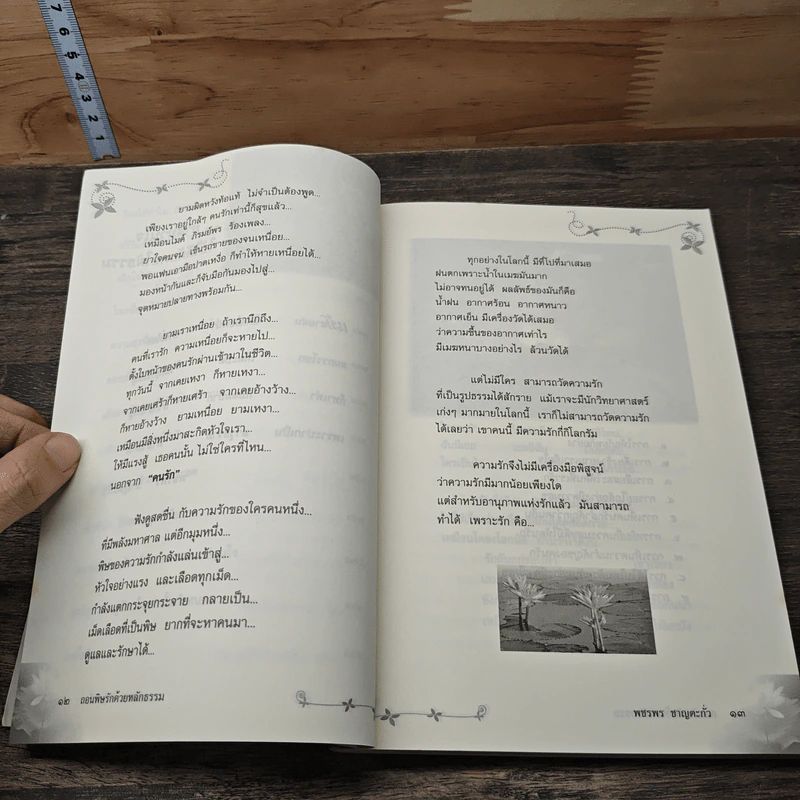 7
6
5
4
3
2
1
ยามผิดหวังท้อแท้ ไม่จำเป็นต้องพูด...
เพียงเราอยู่ใกล้ๆ คนรักเท่านี้ก็สุขแล้ว...
เหมือนไมค์ ภิรมย์พร ร้องเพลง...
ยาใจคนจน เข็นรถขายของจนเหนื่อย...
พอแฟนเอามือปาดเหงื่อ ก็ทำให้หายเหนื่อยได้...
มองหน้ากันและก็จับมือกันมองไปสู่...
จุดหมายปลายทางพร้อมกัน...
ยามเราเหนื่อย ถ้าเรานึกถึง...
คนที่เรารัก ความเหนื่อยก็จะหายไป...
ตั้งใบหน้าของคนรักผ่านเข้ามาในชีวิต...
ทุกวันนี้ จากเคยเหงา ก็หายเหงา...
จากเคยเศร้าก็หายเศร้า จากเคยอ้างว้าง...
ก็หายอ้างว้าง ยามเหนื่อย ยามเหงา...
เหมือนมีสิ่งหนึ่งมาสะกิดหัวใจเรา...
ให้มีแรงสู้ เธอคนนั้น ไม่ใช่ใครที่ไหน...
นอกจาก "คนรัก"
ฟังดูสดชื่น กับความรักของใครคนหนึ่ง...
ที่มีพลังมหาศาล แต่อีกมุมหนึ่ง...
พิษของความรักกำลังแล่นเข้าสู่...
หัวใจอย่างแรง และเลือดทุกเม็ด...
กำลังแตกกระจุยกระจาย กลายเป็น...
เม็ดเลือดที่เป็นพิษ ยากที่จะหาคนมา...
ดูแลและรักษาได้...
๑๒ ถอนพิษรักด้วยหลักธรรม
ทุกอย่างในโลกนี้ มีที่ไปที่มาเสมอ
ฝนตกเพราะน้ำในเมฆมันมาก
ไม่อาจทนอยู่ได้ ผลลัพธ์ของมันก็คือ
น้ำฝน อากาศร้อน อากาศหนาว
อากาศเย็น มีเครื่องวัดได้เสมอ
ว่าความชื้นของอากาศเท่าไร
มีเมฆหนาบางอย่างไร ล้วนวัดได้
แต่ไม่มีใคร สามารถวัดความรัก
ที่เป็นรูปธรรมได้สักราย แม้เราจะมีนักวิทยาศาสตร์
เก่งๆ มากมายในโลกนี้ เราก็ไม่สามารถวัดความรัก
ได้เลยว่า เขาคนนี้ มีความรักกี่กิโลกรัม
ความรักจึงไม่มีเครื่องมือพิสูจน์
ว่าความรักมีมากน้อยเพียงใด
แต่สำหรับอานุภาพแห่งรักแล้ว มันสามารถ
ทำได้ เพราะรัก คือ...
พชรพร ชาญตะกั่ว ๑๓